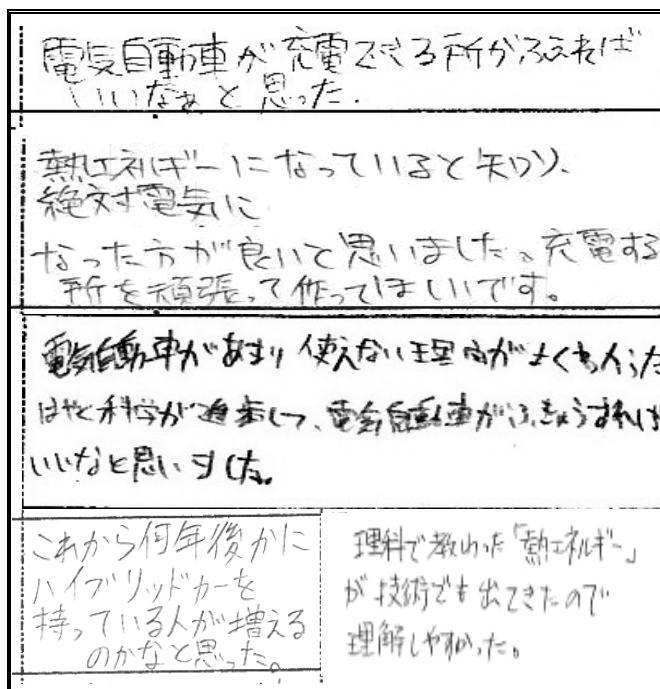 電気自動車が充電できる所がふえれば
いいなぁと思った.
熱エネルギーになっていると知り、
絶対電気に
なった方が良いと思いました。充電する
所を頑張って作ってほしいです。
電気自動車があまり使えない理由がよくわかった
はやく科学が進歩して、電気自動車がふきゅうすれば
いいなと思いました。
これから何年後かに
ハイブリッドカーを
持っている人が増える
のかなと思った。
理科で教わった「熱エネルギー」
が技術でも出てきたので
理解しやすかった。